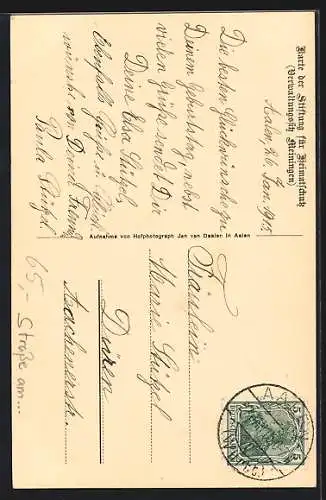 Karte der Stiftung für Heimatschutz
(Verwaltungssitz Meiningen)
Aalen, 26. Jan. 1915.
Die besten Glückwünsche zu
Deinem Geburtstag, nebst
vielen Grüße sendet Dir
Deine Elsa Stützel,
Ebenfalls Grüße u. Glück-
wünsche von Deiner Freundin
Paula Stützel.
Aufnahme von Hofphotograph Jan van Daalen in Aalen
Fräulein
Marie Stützel
Düren
Aachenerstr.
65,- Straße am...
AALEN
5 5